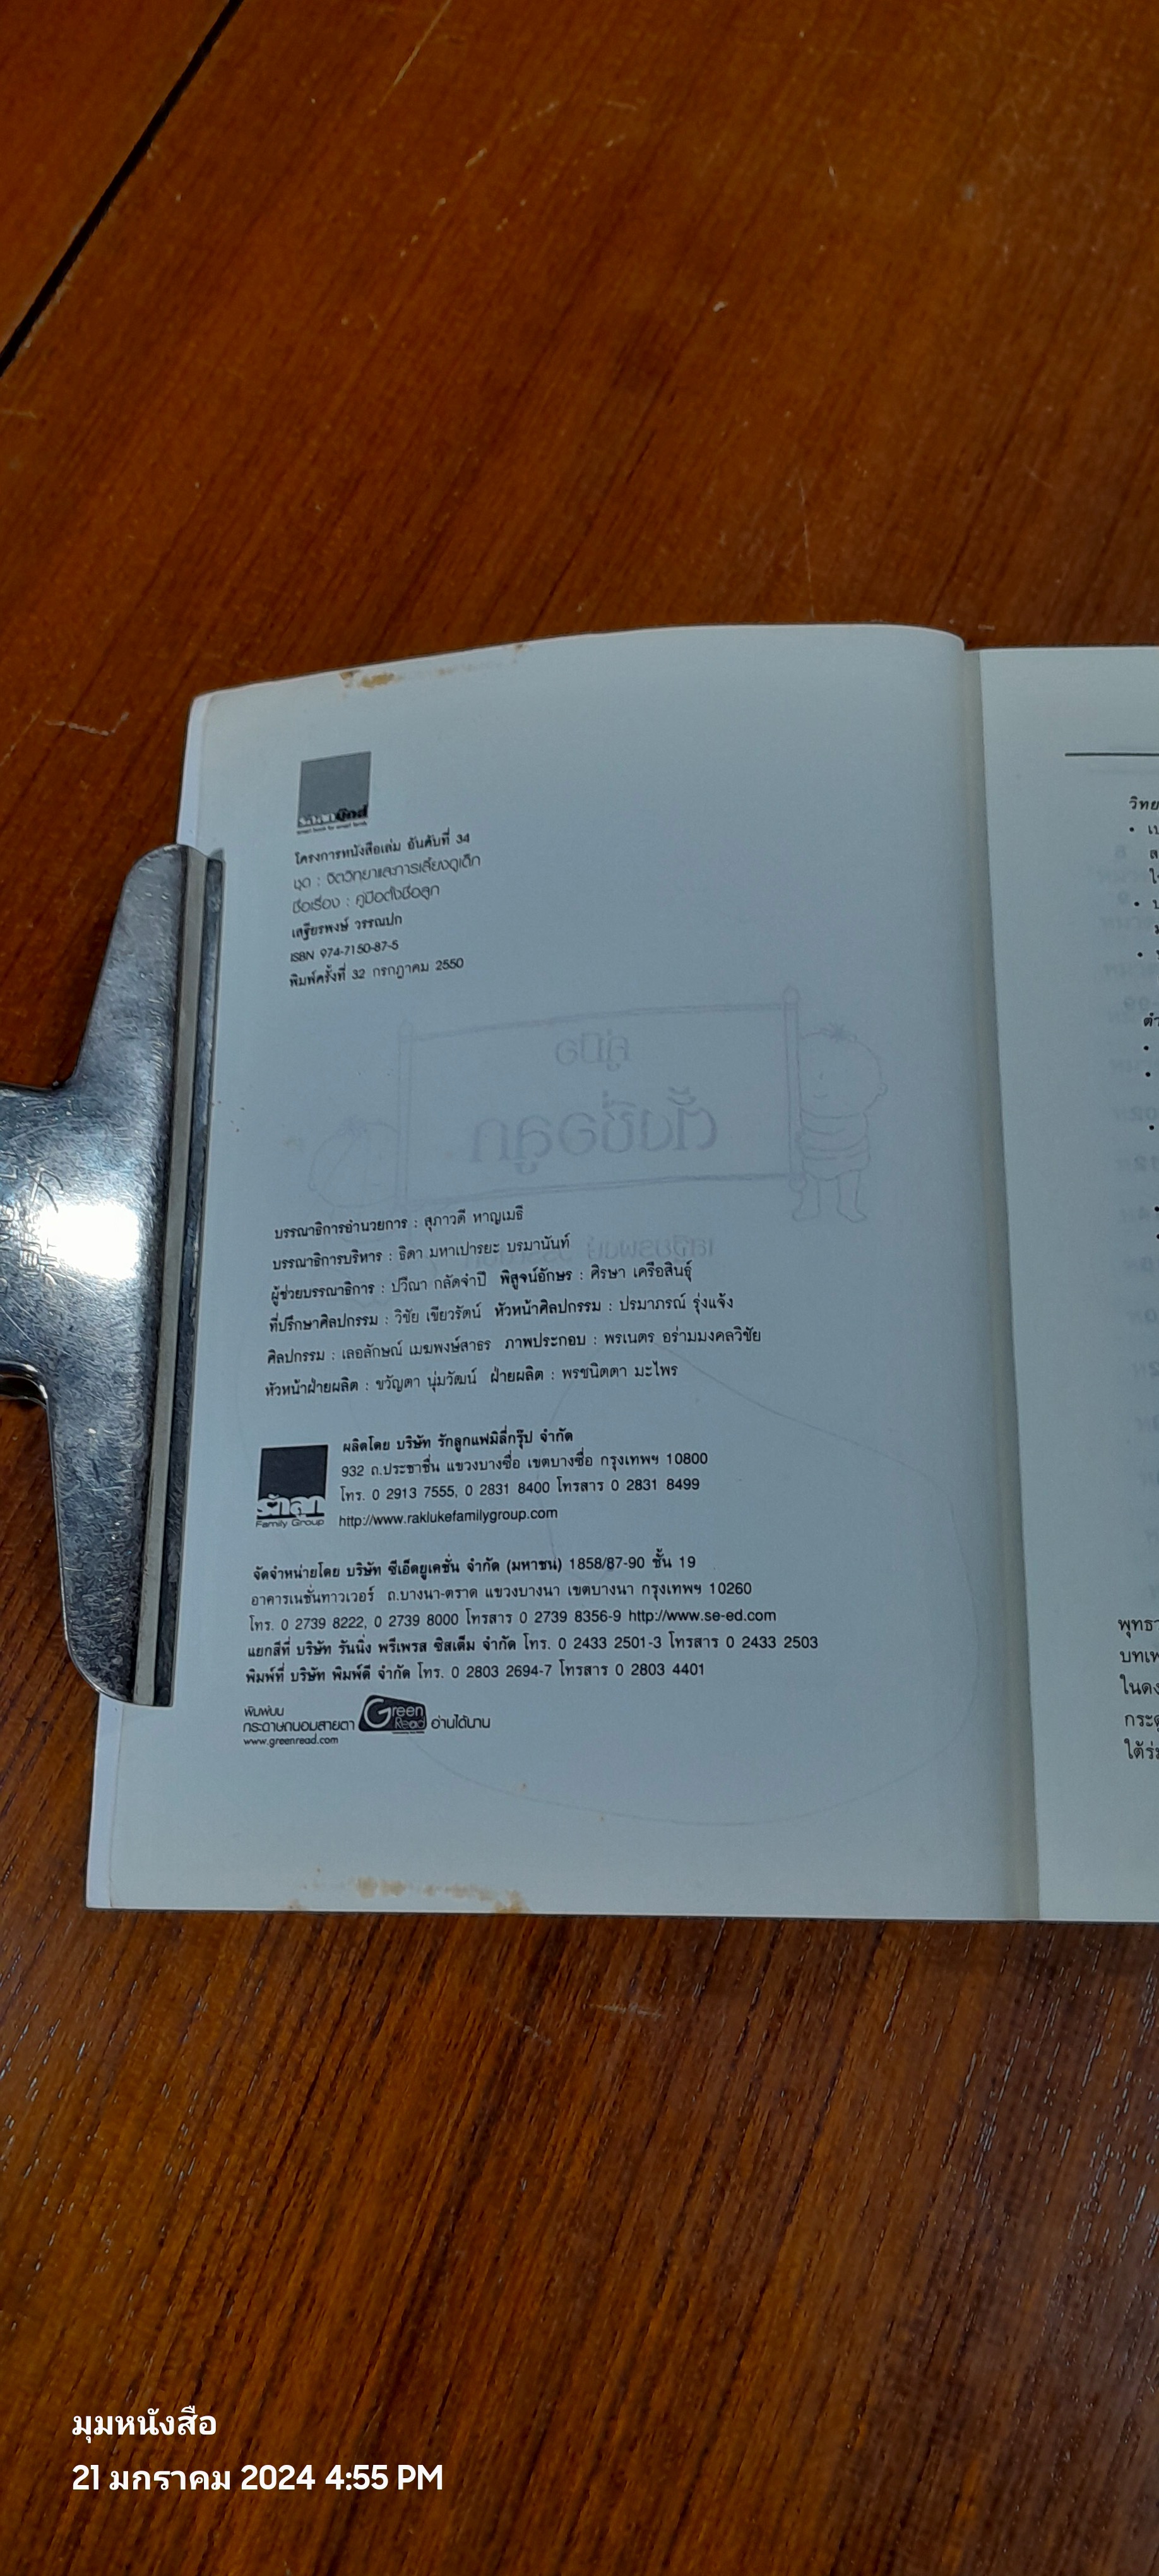 รักลูกบุ๊กส์
โครงการหนังสือเล่ม อันดับที่ 34
ชุด : จิตวิทยาและการเลี้ยงดูเด็ก
ชื่อเรื่อง : คู่มือตั้งชื่อลูก
เสฐียรพงษ์ วรรณปก
ISBN 974-7150-87-5
พิมพ์ครั้งที่ 32 กรกฎาคม 2550
คู่มือ
ตั้งชื่อลูก
บรรณาธิการอำนวยการ : สุภาวดี หาญเมธี
บรรณาธิการบริหาร : ธิดา มหาเปารยะ บรมานันท์
ผู้ช่วยบรรณาธิการ : ปวีณา กลัดจำปี พิสูจน์อักษร : ศิรษา เครือสินธุ์
ที่ปรึกษาศิลปกรรม : วิชัย เขียวรัตน์ หัวหน้าศิลปกรรม : ปรมาภรณ์ รุ่งแจ้ง
ศิลปกรรม : เลอลักษณ์ เมฆพงษ์สาธร ภาพประกอบ : พรเนตร อร่ามมงคลวิชัย
หัวหน้าฝ่ายผลิต : ขวัญตา นุ่มวัฒน์ ฝ่ายผลิต : พรชนิตตา มะไพร
รักลูก
Family Group
ผลิตโดย บริษัท รักลูกแฟมิลี่กรุ๊ป จำกัด
932 ถ.ประชาชื่น แขวงบางซื่อ เขตบางซื่อ กรุงเทพฯ 10800
โทร. 0 2913 7555, 0 2831 8400 โทรสาร 0 2831 8499
http://www.raklukefamilygroup.com
จัดจำหน่ายโดย บริษัท ซีเอ็ดยูเคชั่น จำกัด (มหาชน) 1858/87-90 ชั้น 19
อาคารเนชั่นทาวเวอร์ ถ.บางนา-ตราด แขวงบางนา เขตบางนา กรุงเทพฯ 10260
โทร. 0 2739 8222, 0 2739 8000 โทรสาร 0 2739 8356-9 http://www.se-ed.com
แยกสีที่ บริษัท รันนิ่ง พรีเพรส ซิสเต็ม จำกัด โทร. 0 2433 2501-3 โทรสาร 0 2433 2503
พิมพ์ที่ บริษัท พิมพ์ดี จำกัด โทร. 0 2803 2694-7 โทรสาร 0 2803 4401
พิมพ์บน
กระดาษถนอมสายตา Green Read อ่านได้นาน
www.greenread.com
มุมหนังสือ
21 มกราคม 2024 4:55 PM